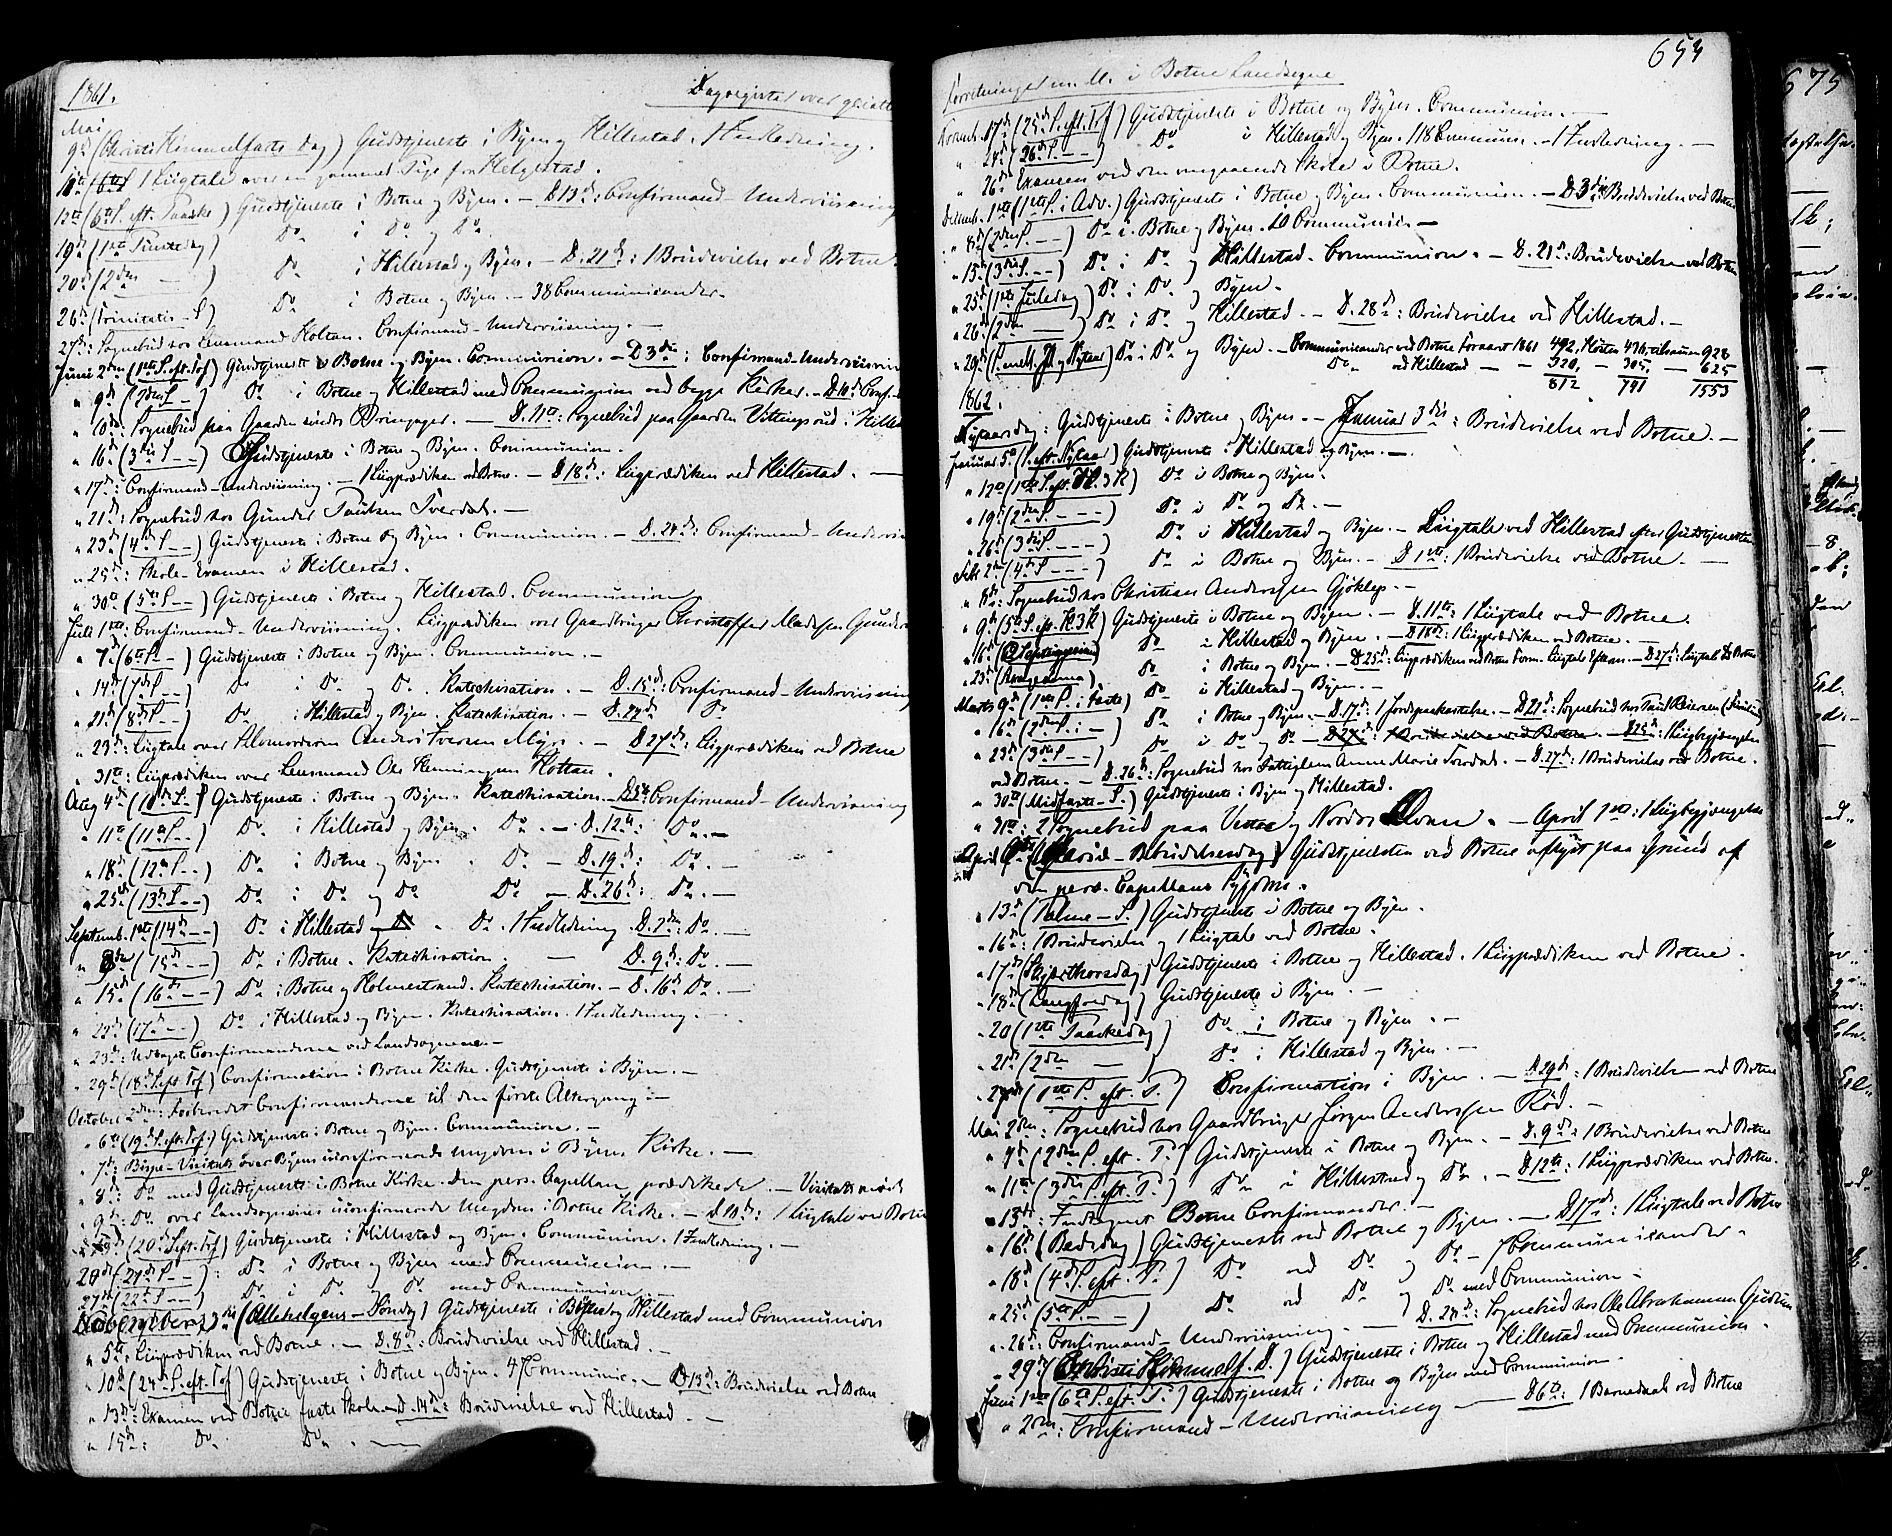 1861.
Dagregister over geistl
Mai
9de (Christi Himmelfarts Dag) Gudstjeneste i Byen og Hillestad. 1 Indledning.
11te 1 Liigtale over en gammel Pige fra Helgestad.
12te (6te S. eft. Paaske) Gudstjeneste i Botne og Byen. – D. 13de: Confirmand-Underviisning
19de (1ste Pintsedag) Do i Do og Do.
20de (2den — ) Do i Hillestad og Byen. – D. 21de: 1 Brudevielse ved Botne.
26de (Trinitatis-S.) Do i Botne og Byen. – 38 Communicander.
27de: Sognebud hos Lensmand Holtan. Confirmand-Underviisning. —
Juni 2den (1ste S. eft. Trf) Gudstjeneste i Botne og Byen. Communion. – D. 3die: Confirmand-Underviisn
" 9de (2den S. –) Do i Botne og Hillestad med Communion ved begge Kirker. – D. 10de Conf.
" 10de: Sognebud paa Gaarden – D. 11te: Sognebud paa Gaarden Vittingsrud i Hillest
" 16de (3die S. – –) Gudstjeneste i Botne og Byen. Communion.
" 17de: Confirmand-Underviisning. – Liigprædiken ved Botne. – D. 18de: Liigprædiken ved Hillestad. —
" 21de: Sognebud hos Gunder Paulsen Tverdal. –
" 23de (4de S. – –) Gudstjeneste i Botne og Byen. Communion. – D. 24de: Confirmand-Undervi
" 25de: Skole-Examen i Hillestad.
" 30te (5te S. – –) Gudstjeneste i Botne og Hillestad. Communion
Juli 1ste: Confirmand-Underviisning. Liigprædiken over Gaardbruger Christoffer Madssen
" 7de (6te S. –) Gudstjeneste i Botne og Byen. Communion. –
" 14de (7de S. – –) Do i Do og Do. Katechisation. – D. 15de: Confirmand-Underviisning
" 21de (8de S. – –) Do i Hillestad og Byen. Katechisation. – D. 22de Do
" 23de: Liigtale over Anders Iversen Myr. – D. 27de: Liigprædiken ved Botne
" 31te: Liigprædiken over Lensmand Ole Henningsen Holtan.
Aug 4de (10de S. –) Gudstjeneste i Botne og Byen. Katechisation. – D. 5te Confirmand-Underviisning
" 11te (11te S. – –) Do i Hillestad og Byen. Do. – D. 12te: Do. –
" 18de (12te S. – –) Do i Botne og Byen. Do – D. 19de: Do. –
" 25de (13de S. – –) Do i Do og Do Do – D. 26de: Do. –
Septemb. 1ste (14de – –) Do i Hillestad Do. 1 Indledning. D. 2den: Do. –
" 8de (15de – –) Do i Botne. Katechisation. – D. 9de: Do. –
" 15de (16de – –) Do i Botne og Holmestrand. Katechisation. – D. 16de Do. –
" 22de (17de – –) Do i Hillestad og Byen. Katechisation. 1 Indledning. –
" 23de: Udvalgt Confirmanderne ved Landsognene –
" 29de (18de S. eft. Trf) Confirmation i Botne Kirke. Gudstjeneste i Byen. –
October 2den: Forberedt Confirmanderne til den første Altergang –
" 6te (19de S. eft. Trf.) Gudstjeneste i Botne og Byen. Communion. –
" 7de: Bispe-Visitats over Byens uconfirmerede Ungdom i Byens Kirke. –
" 8de: Do med Gudstjeneste i Botne Kirke. Den pers. Capellan prædikede. – Visitatsmøde
" 9de: Do over Landsognenes uconfirmerede Ungdom i Botne Kirke. – D. 10de: 1 Liigtale ved Botne
" 13de (20de S. eft. Trf) Gudstjeneste i Hillestad og Byen. Communion. 1 Indledning. –
" 20de (21de S. – –): Do i Botne og Byen med Communion. –
" 27de (22de S. – –) Do i Do og Do med Communion. –
Novembber 3die (Allehelgens-Søndag) Gudstjeneste i Botne og Hillestad med Communion
" 5te: Liigprædiken ved Botne. – D. 8de: Brudevielse ved Hillestad. –
" 10de (24de S. eft. Trf) Gudstjeneste i Botne og Byen. 47 Communic. – D. 13de: Brudevielse ved Botne
" 13de: Examen ved Botne faste Skole – D. 14de: Brudevielse ved Hillestad. –
" 15de: Do Do. —
653
Forretninger m. M. i Botne Landsogne
Novemb. 17de (25de S. eft. Trf) Gudstjeneste i Botne og Byen. Communion. –
" 24de (26de S. – –) Do i Hillestad og Byen. 118 Communic. – 1 Indledning. –
" 26de Examen ved den omgaaende Skole i Botne.
Decemb. 1ste (1ste S. i Adv.) Gudstjeneste i Botne og Byen. Communion. – D. 3die Brudevielse ved Botne
" 8de (2den S. – –) Do i Botne og Byen. Communion –
" 15de (3die S. – –) Do i Do og Hillestad. Communion. – D. 21de: Brudevielse ved Botne
" 25de (1ste Juledag) Do i Do og Byen.
" 26de (2den — ) Do i Do og Hillestad. – D. 28de: Brudevielse ved Hillestad. –
" 29de (S. mell. J. og Nytaar) Do i Do og Byen. – Communicander ved Botne Foraaret 1861 492, Høsten 436, tilsammen 928
Do ved Hillestad — 320, – 305, – 625
812 741 1553
1862.
Nytaarsdag: Gudstjeneste i Botne og Byen. – Januar 3die: Brudevielse ved Botne. –
Januar 5te (S. eft. Nytaar) Gudstjeneste i Hillestad og Byen. –
" 12te (1ste S. eft. H. 3 K) Do i Botne og Byen.
" 19de (2den S. – – –) Do i Do og Do.
" 26de (3die S. – – –) Do i Hillestad og Byen. – Liigtale ved Hillestad efter Gudstjenesten
Febr. 2den (4de S. – – –) Do i Botne og Byen. – D. 1ste: 1 Brudevielse ved Botne. –
" 8de: Sognebud hos Christian Anderssen Gjøklep. –
" 9de (5te S. eft. H. 3 K) Gudstjeneste i Botne og Byen. – D. 11te: 1 Liigtale ved Botne.
" 16de (Septuagesima) Do i Hillestad og Byen. – D. 18de: 1 Liigprædiken ved Botne. –
" 23de Do i Botne og Byen. – D. 25de: Liigprædiken ved Botne Form. Liigtale Efterm. – D. 27de: Liigtale v. Botne
Marts 9de (1ste S. i Faste) Do i Hillestad og Byen. –
" 16de (2den S. i –) Do i Botne og Byen. – D. 17de: 1 Jordpaakastelse. – D. 21de: Sognebud hos Paul Reiersen
" 23de (3die S. – –) Do i Do og Do – D. 27de: 1 Brudevielse ved Botne. – D. 25de: 1 Liigbegjængelse
ved Botne. – D. 26de: Sognebud hos Fattiglem Anne Marie Tverdal. – D. 27de: 1 Brudevielse ved Botne.
" 30te (Midfaste-S.) Gudstjeneste i Byen og Hillestad.
" 31te: 2 Sognebud paa Vestre og Nordre – April 1ste: 1 Liigbegjængelse
April (Mariæ-Bebudelsesdag) Gudstjenesten ved Botne aflyst paa Grund af
den pers. Capellans Sygdom.
" 13de (Palme-S.) Gudstjeneste i Botne og Byen.
" 16de: 1 Brudevielse og 1 Liigtale ved Botne.
" 17de (Skjærthorsdag) Gudstjeneste i Botne og Hillestad. 1 Liigprædiken ved Botne.
" 18de (Langfredag) Gudstjeneste i Byen. –
" 20 (1ste Paaskedag) Do i Botne og Byen. –
" 21de (2den — ) Do i Hillestad og Byen. –
" 27de (1ste S. eft. P.) Confirmation i Byen. – D. 29de: 1 Brudevielse ved Botne
Mai 2den: Sognebud hos Gaardbruger Jørgen Anderssen Rød. –
" 4de (2den S. eft. P.) Gudstjeneste i Botne og Byen. – D. 9de: 1 Brudevielse ved Botne
" 11te (3die S. eft. P.) Do i Hillestad og Do. – D. 12te: 1 Liigprædiken ved Botne.
" 13de: Indtegnet Botne Confirmander. –
" 16de (Bededag) Gudstjeneste ved Botne og Byen. – D. 17de: 1 Liigtale ved Botne
" 18de (4de S. eft. P.) Do ved Do og Do – Communicander.
" 25de (5te S. – –) Do ved Do og Do med Communion –
" 26de: Confirmand-Underviisning. – D. 28de: Sognebud hos Ole Abrahamsen
" 29de (Christi Himmelf. D.) Gudstjeneste i Botne og Hillestad med Communion.
Juni 1ste (6te S. eft. P.) Gudstjeneste i Botne og Byen med Communion.
" 2den: Confirmand-Underviisning – D. 6te: 1 Barnedaab ved Botne
675